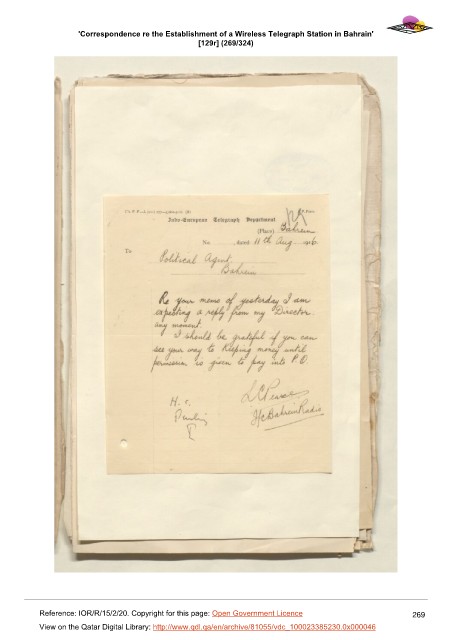 'Correspondence re the Establishment of a Wireless Telegraph Station in Bahrain'
[129r] (269/324)
Indo-European Telegraph Department
(Place) Bahrein
No. dated 11th Aug 1916
To
Political Agent,
Bahrein
Re your memo of yesterday I am
expecting a reply from my Director
any moment.
I should be grateful if you can
see your way to keeping money until
permission is given to pay into P.O
Pending
I/c Bahrein Radio
Reference: IOR/R/15/2/20. Copyright for this page: Open Government Licence
View on the Qatar Digital Library: http://www.qdl.qa/en/archive/81055/vdc_100023385230.0x000046
269